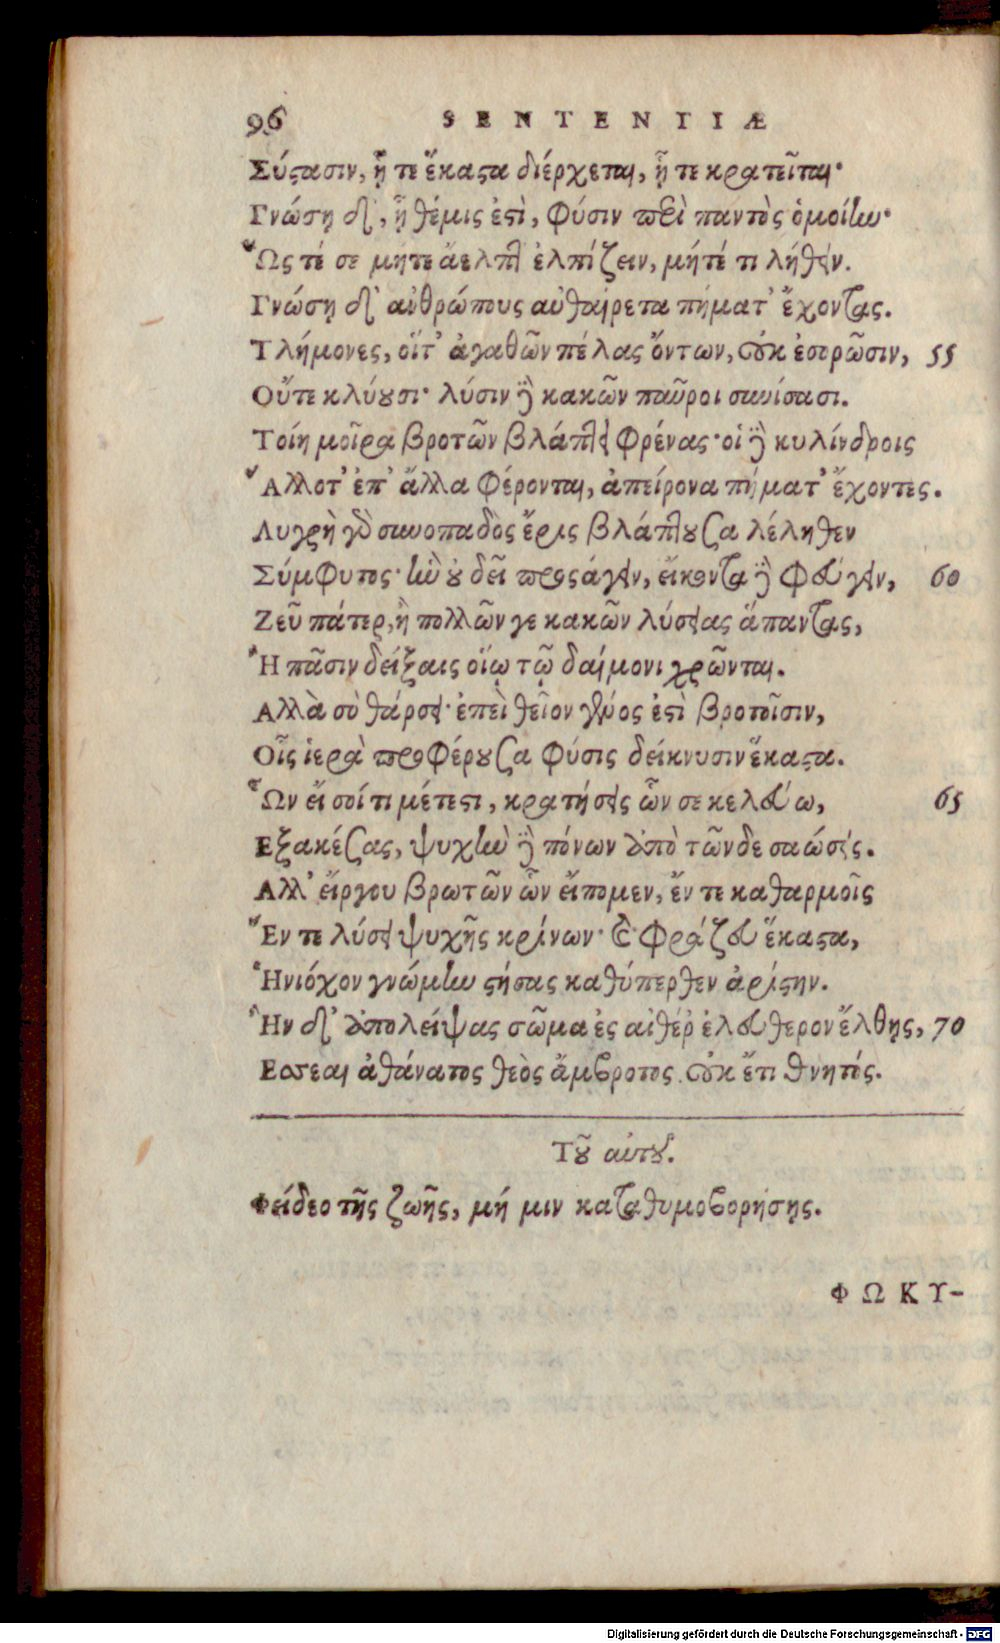 96 SENTENTIÆ
Σύςασιν, ᾗ τε ἕκαςα διέρχεται, ᾗ τε κρατεῖται·
Γνώσῃ δ', ἣ θέμις ἐςὶ, φύσιν περὶ παντὸς ὁμοίην·
Ὥς τέ σε μήτε ἄελπτ' ἐλπίζειν, μήτέ τι λήθειν.
Γνώσῃ δ' ἀνθρώπους αὐθαίρετα πήματ' ἔχοντας.
Τλήμονες, οἵ τ' ἀγαθῶν πέλας ὄντων, οὐκ ἐσορῶσιν, 55
Οὔτε κλύουσι· λύσιν δὲ κακῶν παῦροι συνίσασι.
Τοίη μοῖρα βροτῶν βλάπτει φρένας· οἱ δὲ κυλίνδροις
Ἄλλοτ' ἐπ' ἄλλα φέρονται, ἀπείρονα πήματ' ἔχοντες.
Λυγρὴ γὰρ συνοπαδὸς ἔρις βλάπτουσα λέληθεν
Σύμφυτος· ἣν οὐ δεῖ προςάγειν, εἴκοντα δὲ φεύγειν, 60
Ζεῦ πάτερ, ἢ πολλῶν γε κακῶν λύσειας ἅπαντας,
Ἢ πᾶσιν δείξαις οἵῳ τῷ δαίμονι χρῶνται.
Αλλὰ σὺ θάρσει· ἐπεὶ θεῖον γένος ἐςὶ βροτοῖσιν,
Οἷς ἱερὰ προφέρουσα φύσις δείκνυσιν ἕκαςα.
Ὧν εἴ σοί τι μέτεςι, κρατήσεις ὧν σε κελεύω, 65
Εξακέσας, ψυχὴν δὲ πόνων ἀπὸ τῶνδε σαώσεις.
Αλλ' εἴργου βρωτῶν ὧν εἴπομεν, ἔν τε καθαρμοῖς
Ἔν τε λύσει ψυχῆς κρίνων· καὶ φράζευ ἕκαςα,
Ἡνιόχον γνώμην ςήσας καθύπερθεν ἀρίςην.
Ἢν δ' ἀπολείψας σῶμα ἐς αἰθέρ' ἐλεύθερον ἔλθῃς, 70
Εσσεαι ἀθάνατος θεὸς ἄμβροτος οὐκ ἔτι θνητός.
Τοῦ αὐτοῦ.
Φείδεο τῆς ζωῆς, μή μιν καταθυμοβορήσῃς.
ΦΩΚΥ-
Digitalisierung gefördert durch die Deutsche Forschungsgemeinschaft - DFG